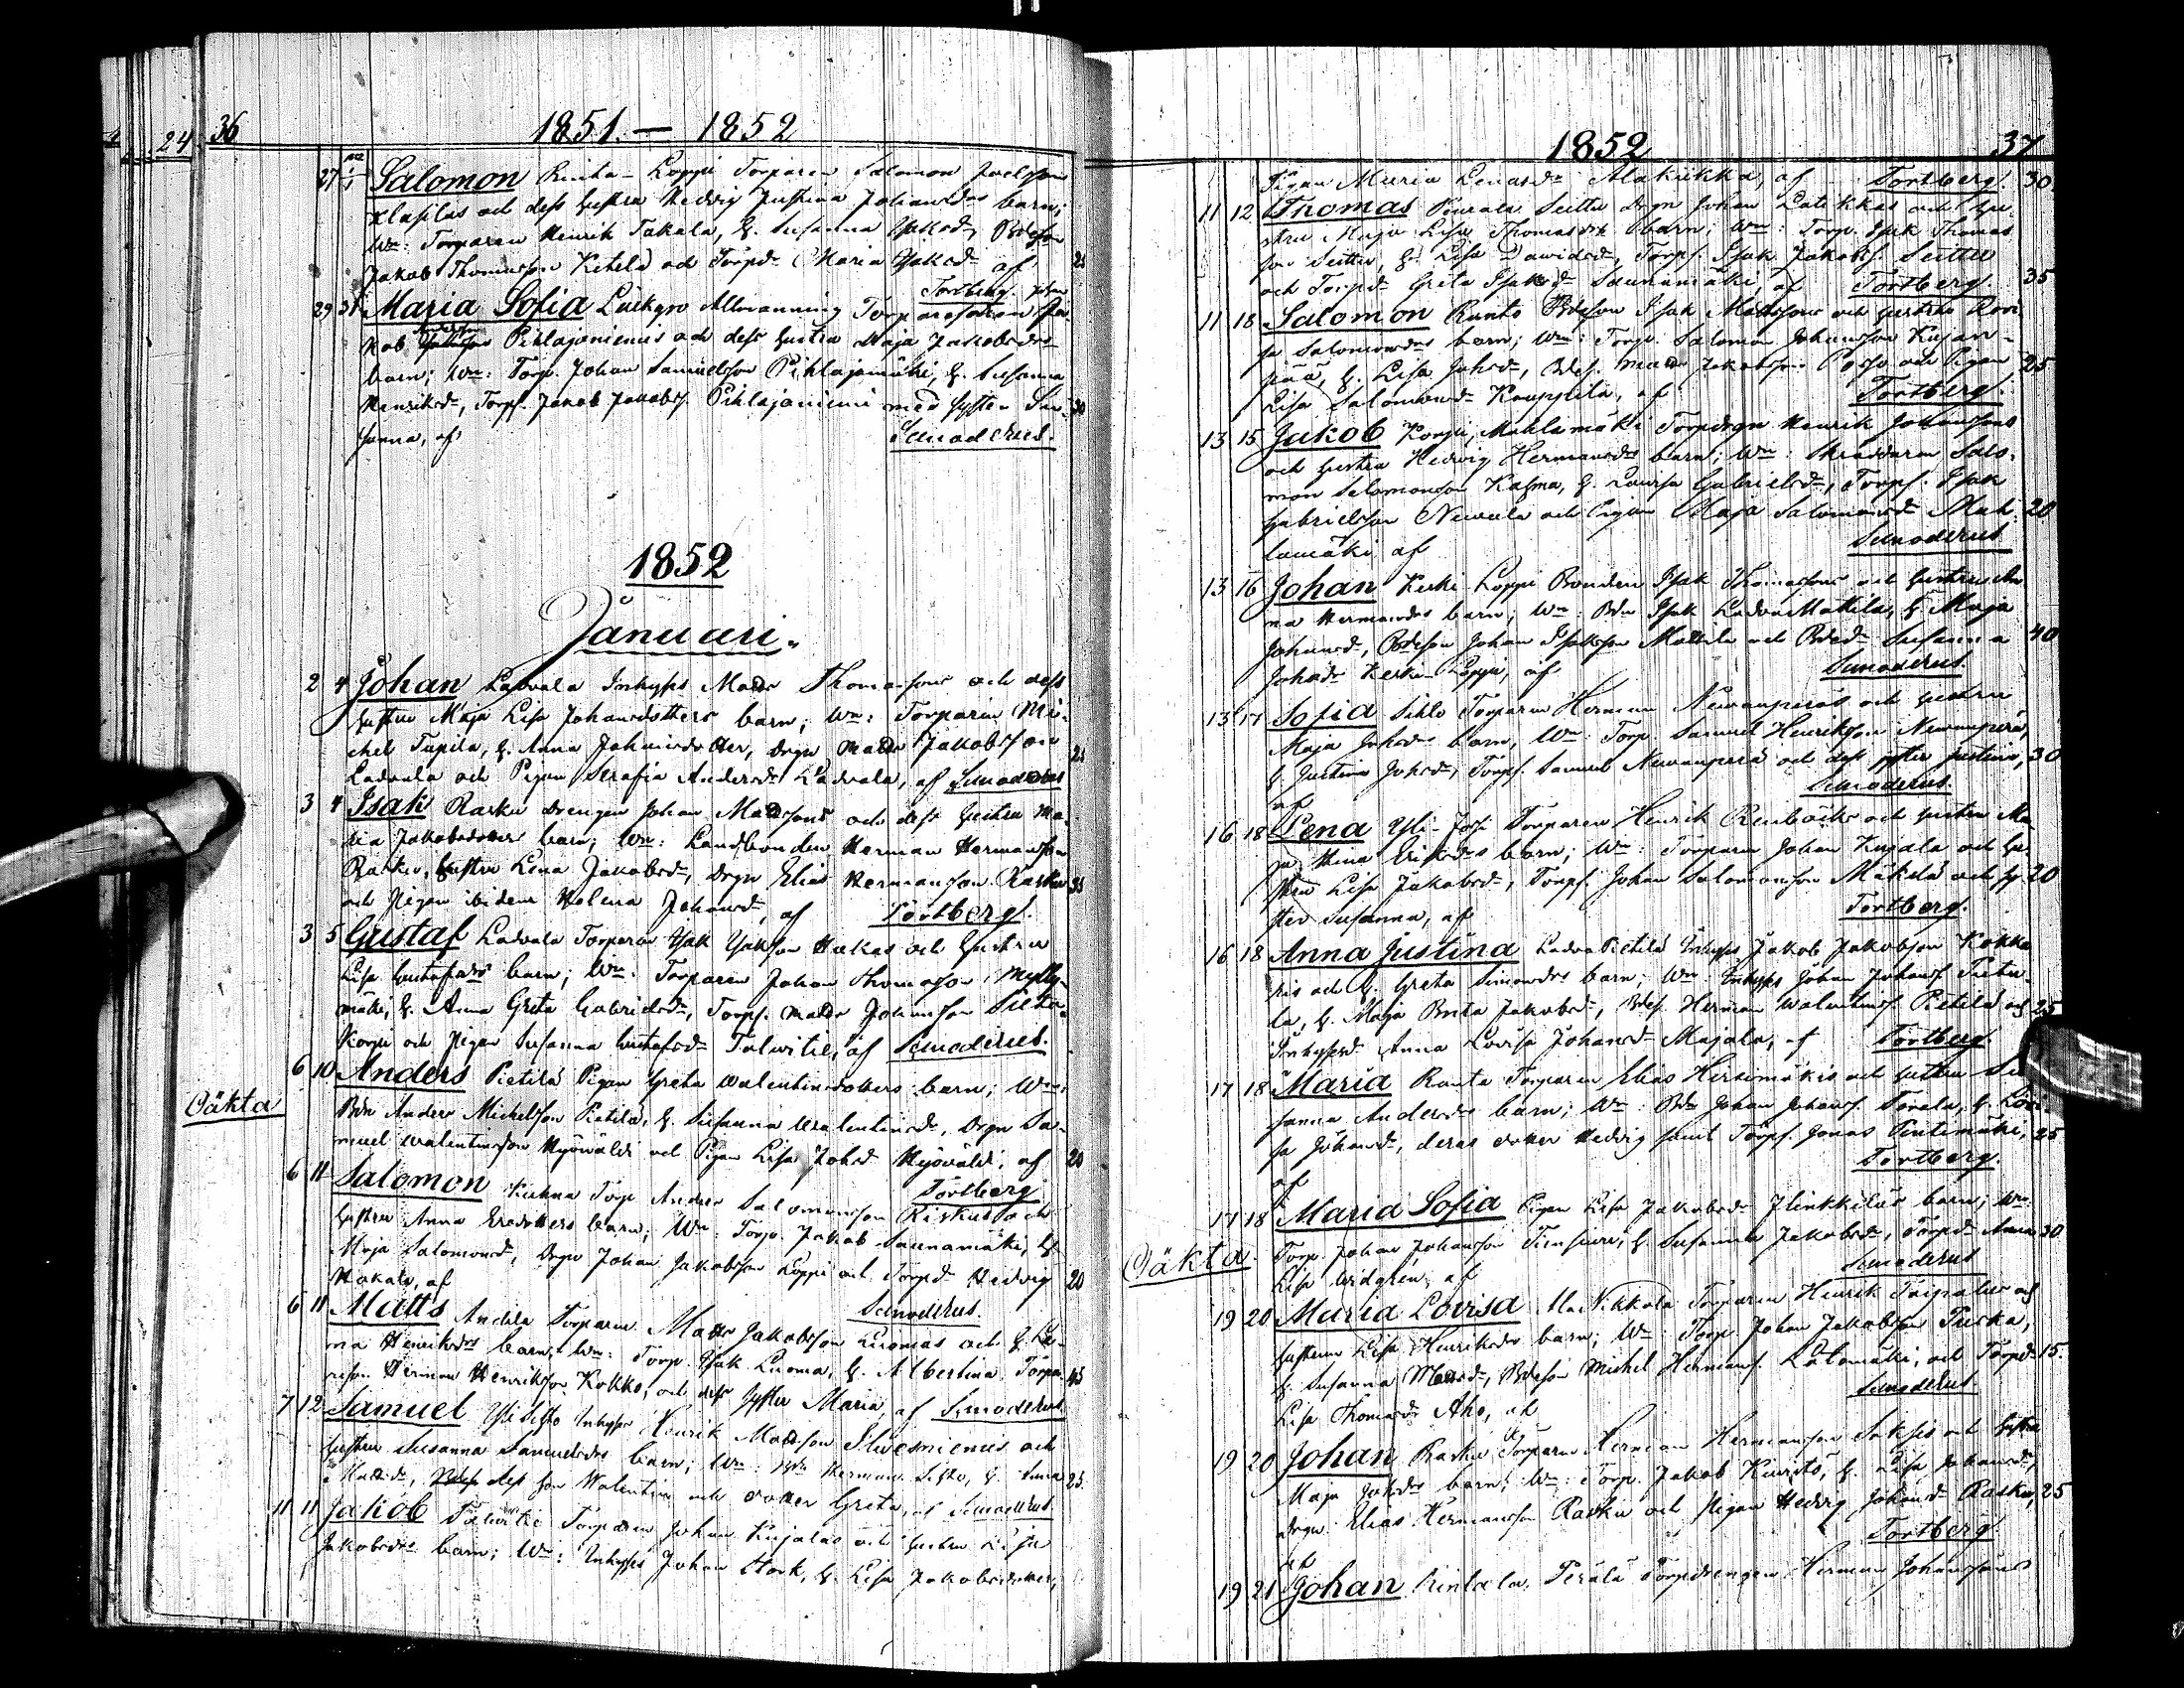 24
36
1851. — 1852
27 1 Salomon Loppi Torparen Salomon
och dess Hustru Hedvig Justina Johansdrs barn;
Wn: Torparen Henrik Takala, H. Susanna
Jakob Thomasson Ketela och Torpd. Maria af
Tortberg.
29 31 Maria Sofia Allmänning
kob Pihlajaniemis och dess hustru Maja Jakobsdrs
barn; Wn: Torp. Johan Samuelsson Pihlajamäki, H. Susanna
Henriksdr, Torps. Jakob Jakobss. Pihlajaniemi med syster Su- 30
sanna, af Smoderus.
1852
Januari.
2 4 Johan Ladvala Inhyses Matts Thomassons och dess
hustru Maja Lisa Johansdotters barn; Wn: Torparen Mi-
chel Tupila, H. Anna Johansdotter, Drgn Matts Jakobsson
Ladvala och Pigan Serafia Andersdr Ladvala, af Smoderus
3 4 Isak Rasku Drengen Johan Mattssons och dess hustru Ma-
ria Jakobsdotters barn; Wn: Landbonden Herman Hermansson
Rasku, Hustru Lena Jakobsdr, Drgn Elias Hermansson Rasku 35
och Pigan ibidem Helena Johansdr, af Tortberg.
3 5 Gustaf Ladvala Torparen Isak Isaksson Hakas och Hustru
Lisa Gustafsdrs barn; Wn: Torparen Johan Thomasson Mylly-
mäki, H. Anna Greta Gabrielsdr, Torps. Matts Johansson
Korpi och Pigan Susanna Gustafsdr Talvitie, af Smoderus.
Oäkta
6 10 Anders Pietilä Pigan Greta Walentinsdotters barn; Wn:
Bdn Anders Michelsson Pietilä, H. Susanna Walentinsdr, Drgn Sa-
muel Walentinsson Hyövälti och Pigan Lisa Johsdr Hyövälti, af 20
Tortberg
6 11 Salomon Torp. Anders Salomonsson Riskus och
hustru Anna Ersdotters barn; Wn: Torp. Jakob Saunamäki, H.
Maja Salomonsdr, Drgn Johan Jakobsson Loppi och Torpd. Hedvig 20
Hakala, af Smoderus.
6 11 Matts Andela Torparen Matts Jakobsson Luomas och H. Le-
na Henriksdrs barn; Wn: Torp. Isak Luoma, H. Albertina, Torpa-
reson Herman Henriksson Kokko, och dess syster Maria, af Smoderus 45
7 12 Samuel Yli Sihto Inhyses Henrik Mattsson och
hustru Susanna Samuelsdrs barn; Wn: Bdn Herman Sihto, H. Anna
Mattsdr, dess son Walentin och dotter Greta, af Smoderus 25
11 11 Jakob Talvitie Torparen Johan Kujalas och hustru Lisa
Jakobsdrs barn; Wn: Inhyses Johan Stork, H. Lisa Jakobsdotter,
1852
37
Pigan Maria Lenasdr Alakukka, af Tortberg. 30
11 12 Thomas Pourala Seittu Drgn Johan Latikkas och hu-
stru Maja Lisa Thomasdrs barn; Wn: Torp. Isak Thomas
son Seittu, H. Lisa Davidsdr, Torps. Isak Jakobss. Seittu
och Torpd. Greta Isaksdr Saunamäki, af Tortberg. 35
11 18 Salomon Ranto Bdeson Isak Mattssons och hustru Lovi-
sa Salomonsdrs barn; Wn: Torp. Salomon Johansson Kujan-
pää, H. Lisa Johsdr, Bdes. Matts Jakobsson och Pigan 25
Lisa Salomonsdr Kauppila, af Tortberg.
13 15 Jakob Korpi, Mahlamäki Torpdrgn Henrik Johanssons
och hustru Hedvig Hermansdrs barn; Wn: Skräddaren Salo-
mon Salomonsson Kasma, H. Lovisa Gabrielsdr, Torps. Isak
Gabrielsson Nevala och Pigan Maja Salomonsdr Mah- 20
lamäki af Smoderus
13 16 Johan Keski Loppi Bonden Isak Thomassons och hustru An-
na Hermansdrs barn; Wn: Bdn Isak Ladva Mattila, H. Maja
Johansdr, Bdeson Johan Isaksson Mattila och Bded. Susanna 40
Johsdr Keski Loppi, af Smoderus.
13 17 Sofia Sihto Torparen Herman Nevanperäs och hustru
Maja Johsdrs barn, Wn: Torp. Samuel Henriksson Nevanperä,
H. Justina Johsdr, Torps. Samuel Nevanperä och dess syster Justina, 30
af Smoderus.
16 18 Lena Yli-Torparen Henrik Renbäcks och hustru Ma-
ja Stina Eriksdrs barn; Wn: Torparen Johan Kujala och hu-
stru Lisa Jakobsdr, Torps. Johan Salomonsson Mäkelä och sy- 20
ster Susanna, af Tortberg.
16 18 Anna Justina Ladva Pietilä Inhyses Jakob Jakobsson Kokko-
ris och H. Greta Simonsdrs barn; Wn: Inhyses Johan Johanss. Pietu-
la, H. Maja Brita Jakobsdr, Bdes. Herman Walentinss. Pietilä och 25
Inhysesd. Anna Lovisa Johansdr Majala, af Tortberg.
17 18 Maria Ranta Torparen Elias Hirsimäkis och hustru Su-
sanna Andersdrs barn; Wn: Bdn Johan Johanss. Torala, H. Lovi-
sa Johansdr, deras dotter Hedvig samt Torps. Jonas Pentimäki, 25
af Tortberg.
Oäkta.
17 18 Maria Sofia Pigan Lisa Jakobsdr Flinkkiläs barn; Wn:
Torp. Johan Johansson H. Susanna Jakobsdr, Torpd. Anna 30
Lisa Widgren af Smoderus
19 20 Maria Lovisa Ala Nikkola Torparen Henrik Taipalus och
hustrun Lisa Henriksdrs barn; Wn: Torp. Johan Jakobsson Puska,
H. Susanna Mattsdr, Bdeson Michel Hermanss. Latomäki, och Torpd. 15.
Lisa Thomasdr Aho, af Smoderus.
19 20 Johan Rasku Torparen Herman Hermansson Saksis och hustru
Maja Johsdrs barn; Wn: Torp. Jakob Kuristo, H. Lisa Johansdr,
Drgn Elias Hermansson Rasku och Pigan Hedvig Johansdr Rasku, 25
af Tortberg.
19 21 Johan Rintala, Perälä Torpdrengen Herman Johanssons